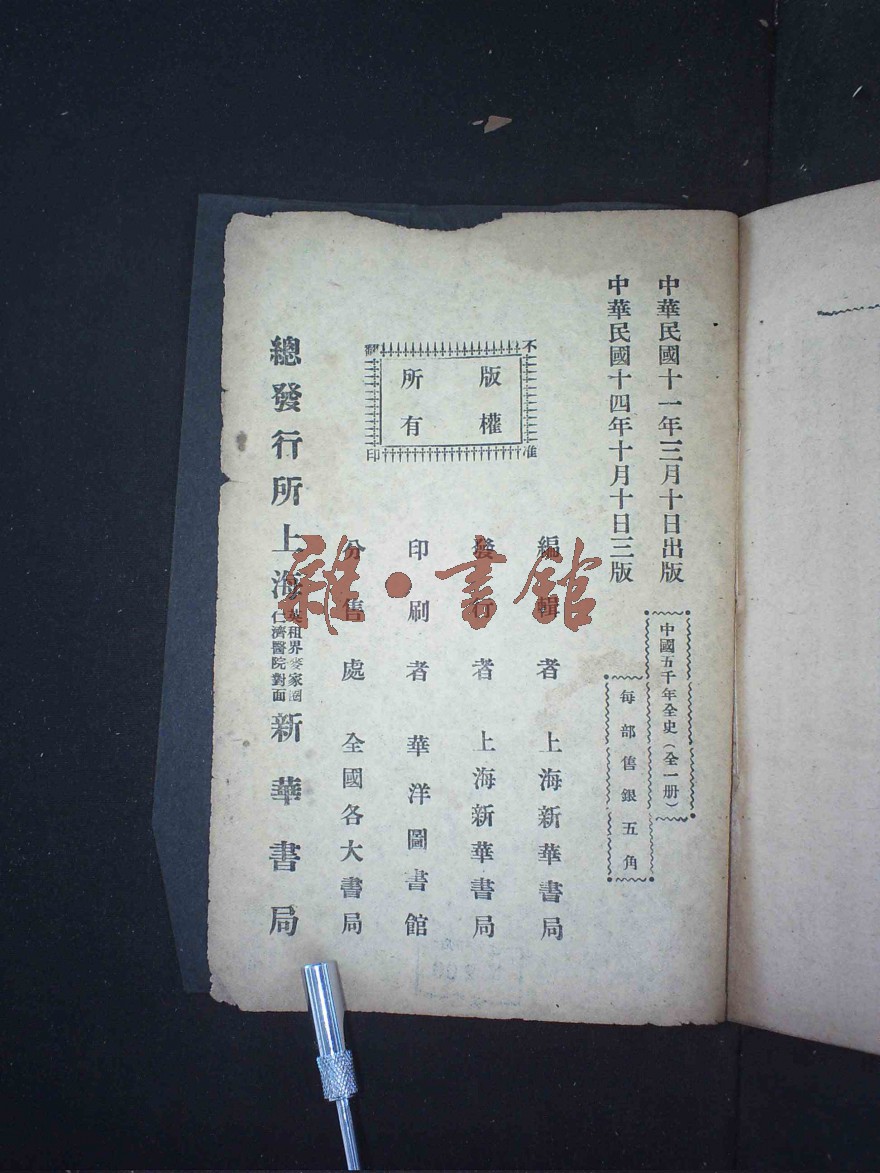 中華民國十一年三月十日出版
中華民國十四年十月十日三版
中國五千年全史（全一册）
每部售銀五角
不准翻印
版權所有
編輯者 上海新華書局
發行者 上海新華書局
印刷者 華洋圖書館
分售處 全國各大書局
總發行所上海英租界麥家圈仁濟醫院對面新華書局
雜·書館